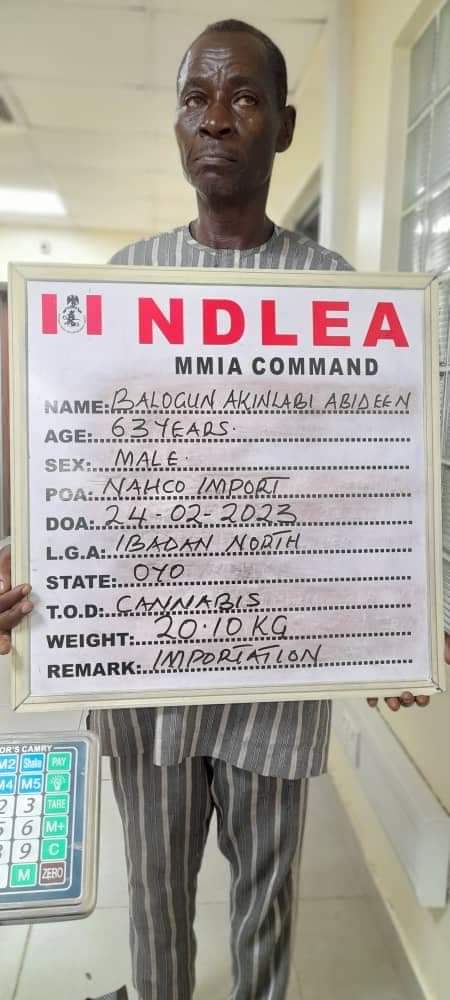 NDLEA
MMIA COMMAND
NAME: BALOGUN AKINLABI ABIDEEN
AGE: 63 YEARS.
SEX: MALE.
POA: NAHCO IMPORT
DOA: 24-02-2023
L.G.A: IBADAN NORTH
STATE: OYO
T.O.D: CANNABIS
WEIGHT: 20.10 KG
REMARK: IMPORTATION
OR'S CAMRY
M2 Shake PAY
M4 M5
2 3 TARE
5 6 M+
9 C
M ZERO